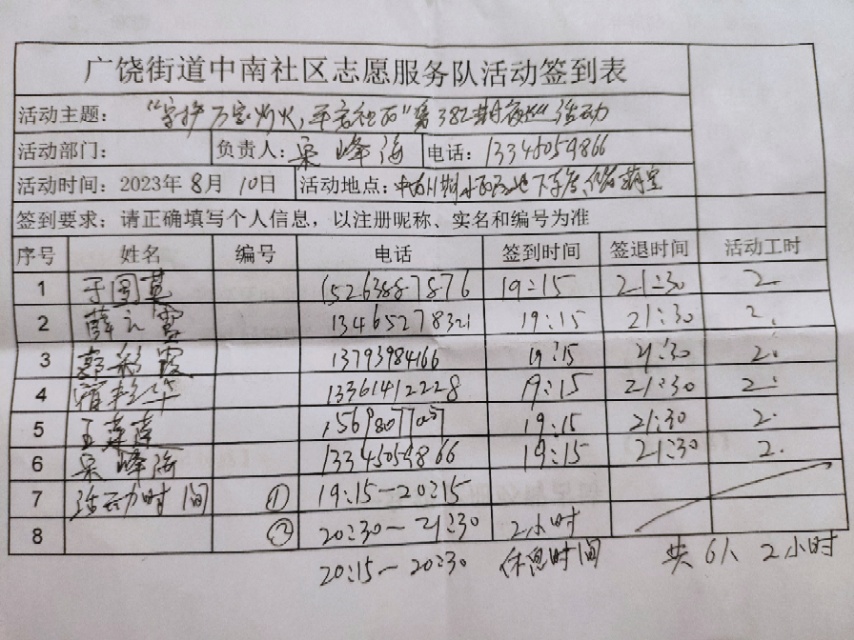 广饶街道中南社区志愿服务队活动签到表
活动主题： 万家灯火，平安社区"第382期夜巡"活动
活动部门： 负责人：峰海 电话：13345059866
活动时间：2023年8月10日 活动地点：
签到要求：请正确填写个人信息，以注册昵称、实名和编号为准
序号 姓名 编号 电话 签到时间 签退时间 活动工时
1 于国英 15263887876 19:15 21:30 2.
2 薛雪 13465278321 19:15 21:30 2.
3 郭彩霞 13793984166 19:15 21:30 2.
4 华 13361412228 19:15 21:30 2.
5 王 19:15 21:30 2.
6 峰海 13345059866 19:15 21:30 2.
7 活动时间 ① 19:15-20:15
8 ② 20:30-21:30 2小时
20:15-20:30 休息时间 共6人 2小时